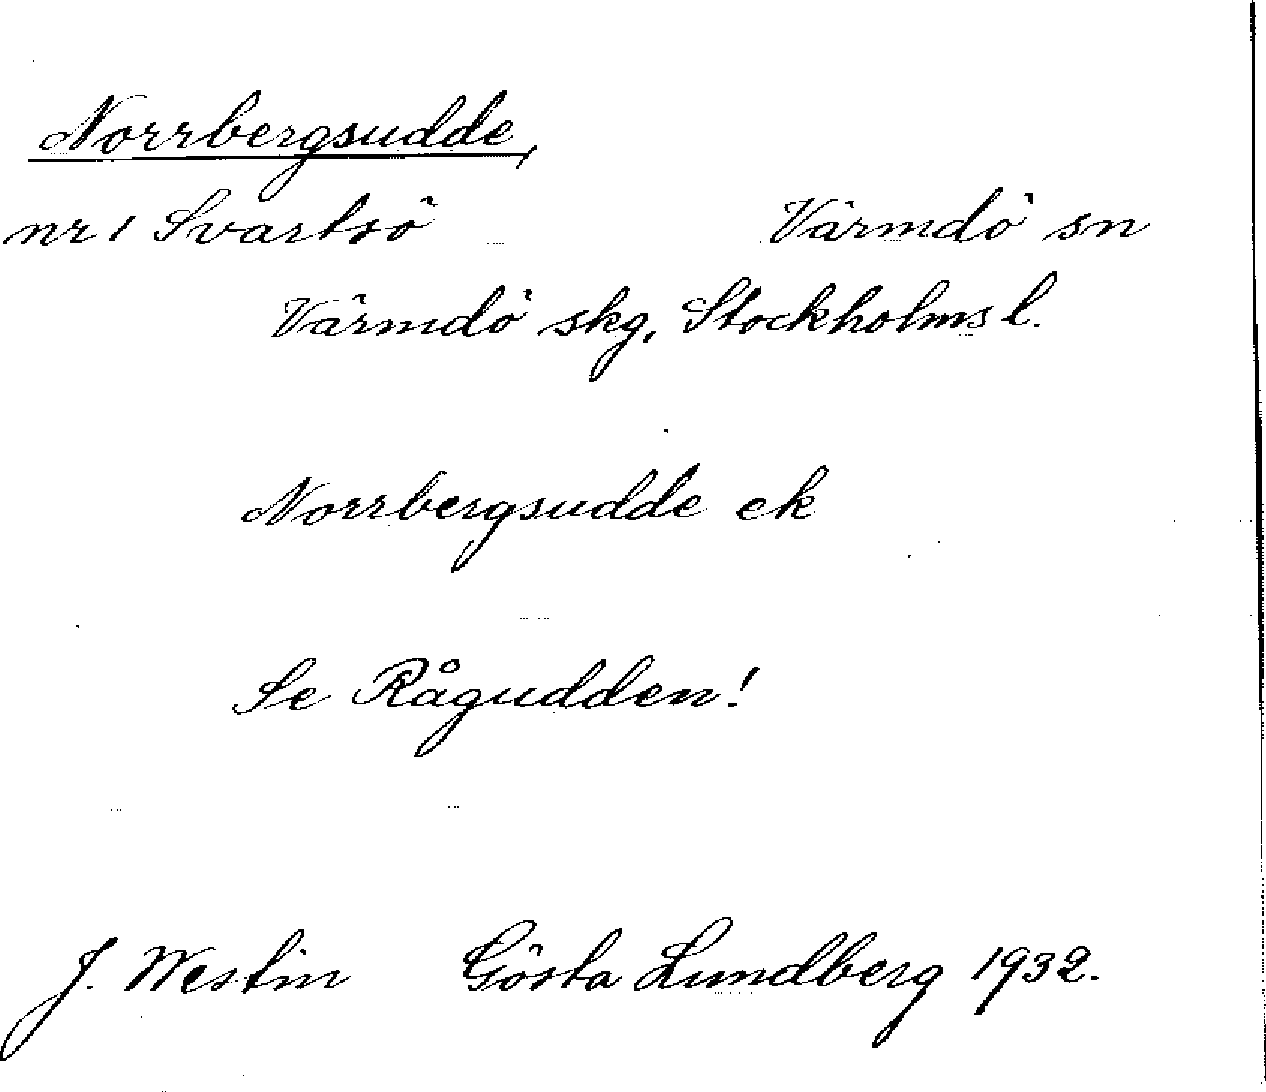 Norrbergsudde,
nr 1 Svartsö Värmdö sn
Värmdö skg, Stockholms l.
Norrbergsudde ek
Se Rågudden!
J. Westin Gösta Lundberg 1932.